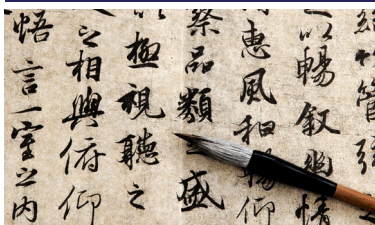 絲竹管弦
以暢敘幽情
惠風和暢仰
察品類之盛
以極視聽之
之相與俯仰
悟言一室之內